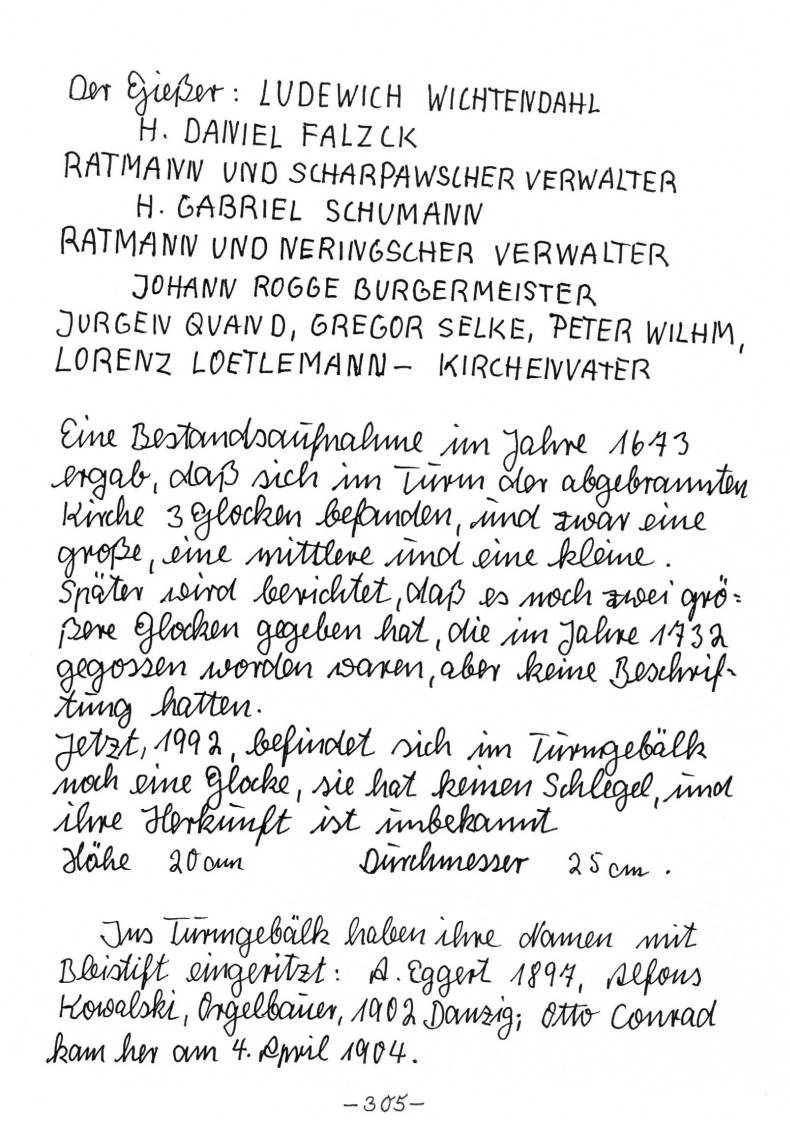 Der Gießer: LUDEWICH WICHTENDAHL
H. DANIEL FALZCK
RATMANN UND SCHARPAWSCHER VERWALTER
H. GABRIEL SCHUMANN
RATMANN UND NERINGSCHER VERWALTER
JOHANN ROGGE BURGERMEISTER
JURGEN QUAND, GREGOR SELKE, PETER WILHM,
LORENZ LOETLEMANN – KIRCHENVATER
Eine Bestandsaufnahme im Jahre 1673
ergab, daß sich im Turm der abgebrannten
Kirche 3 Glocken befanden, und zwar eine
große, eine mittlere und eine kleine.
Später wird berichtet, daß es noch zwei grö=
ßere Glocken gegeben hat, die im Jahre 1732
gegossen worden waren, aber keine Beschrif-
tung hatten.
Jetzt, 1992, befindet sich im Turmgebälk
noch eine Glocke, sie hat keinen Schlegel, und
ihre Herkunft ist unbekannt
Höhe 20 cm Durchmesser 25 cm.
Ins Turmgebälk haben ihre Namen mit
Bleistift eingeritzt: A. Eggert 1897, Alfons
Kowalski, Orgelbauer, 1902 Danzig; Otto Conrad
kam her am 4. April 1904.
-305-